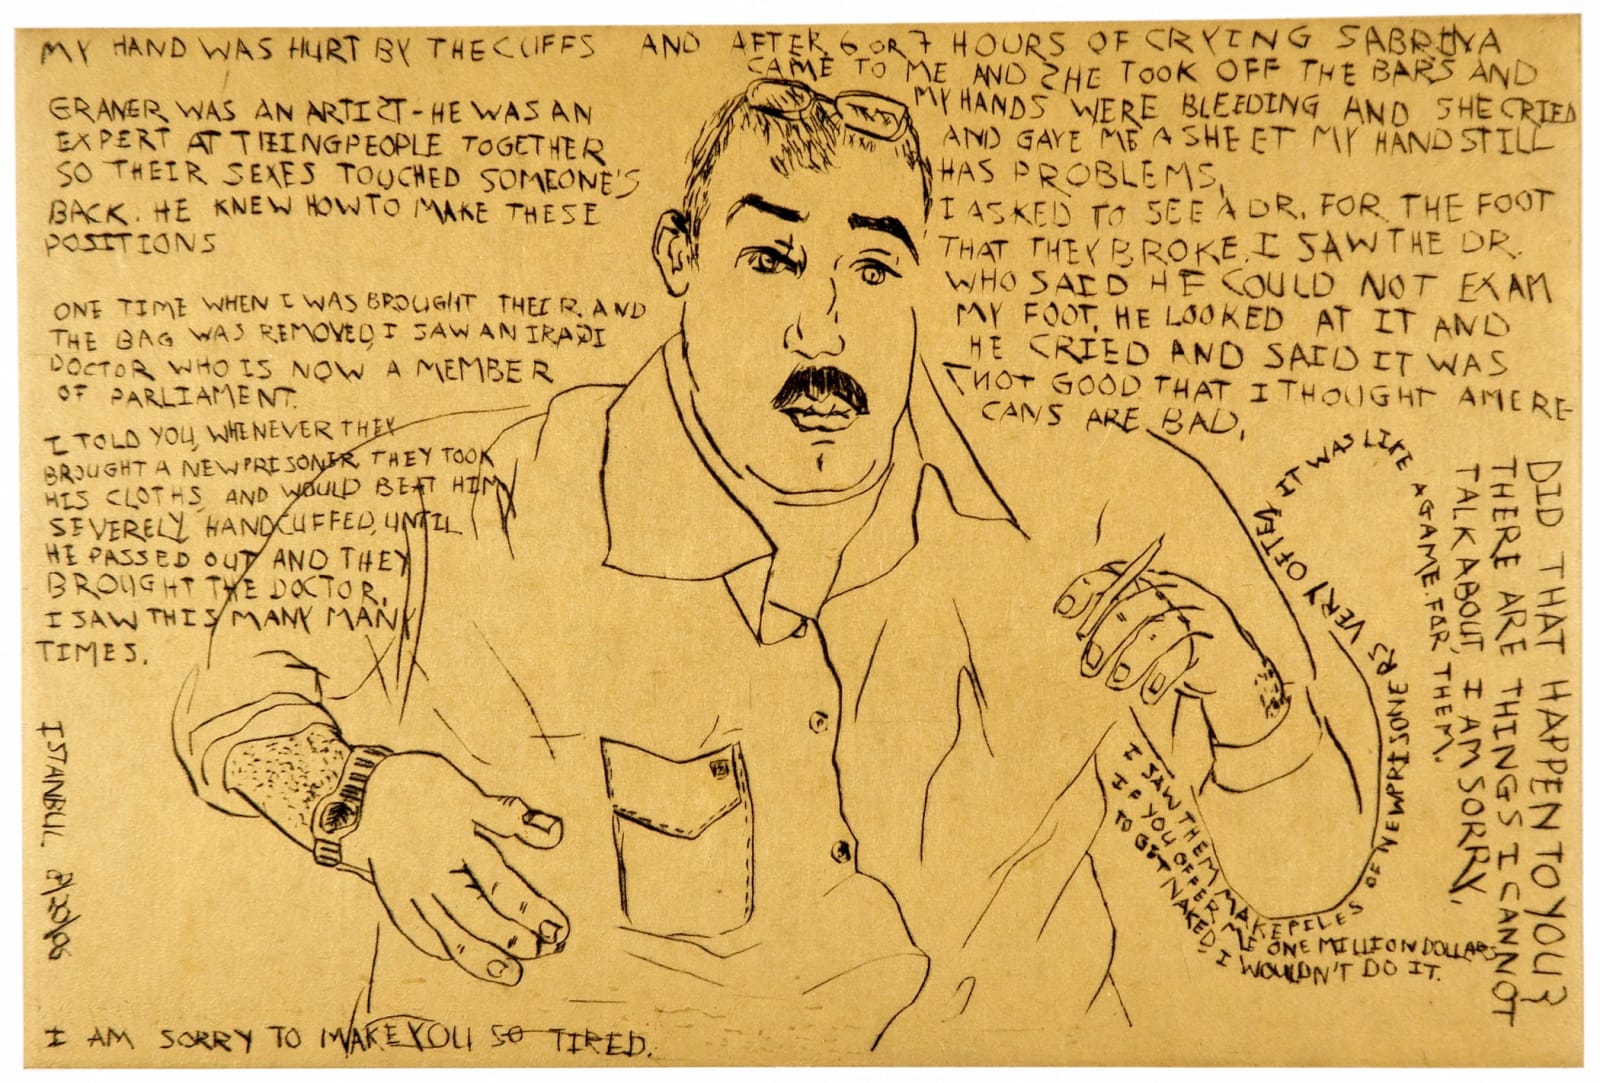 MY HAND WAS HURT BY THE CUFFS
GRANER WAS AN ARTIST - HE WAS AN
EXPERT AT TIEING PEOPLE TOGETHER
SO THEIR SEXES TOUCHED SOMEONE'S
BACK. HE KNEW HOW TO MAKE THESE
POSITIONS
ONE TIME WHEN I WAS BROUGHT THEIR AND
THE BAG WAS REMOVED, I SAW AN IRAQI
DOCTOR WHO IS NOW A MEMBER
OF PARLIAMENT.
I TOLD YOU, WHENEVER THEY
BROUGHT A NEW PRISONER THEY TOOK
HIS CLOTHS, AND WOULD BEAT HIM
SEVERELY, HANDCUFFED, UNTIL
HE PASSED OUT AND THEY
BROUGHT THE DOCTOR.
I SAW THIS MANY MANY
TIMES.
ISTANBUL 8/20/06
I AM SORRY TO MAKE YOU SO TIRED.
AND AFTER 6 OR 7 HOURS OF CRYING SABRINA
CAME TO ME AND SHE TOOK OFF THE BARS AND
MY HANDS WERE BLEEDING AND SHE CRIED
AND GAVE ME A SHEET MY HAND STILL
HAS PROBLEMS,
I ASKED TO SEE A DR. FOR THE FOOT
THAT THEY BROKE. I SAW THE DR.
WHO SAID HE COULD NOT EXAM
MY FOOT. HE LOOKED AT IT AND
HE CRIED AND SAID IT WAS
NOT GOOD THAT I THOUGHT AMERE
CANS ARE BAD.
I SAW THEM MAKE PILES OF NEW PRISONERS VERY OFTEN IT WAS LIKE A GAME. FOR THEM.
IF YOU OFFER ME ONE MILLION DOLLARS
TO GET NAKED, I WOULDN'T DO IT.
DID THAT HAPPEN TO YOU?
THERE ARE THINGS I CANNOT
TALK ABOUT, I AM SORRY.